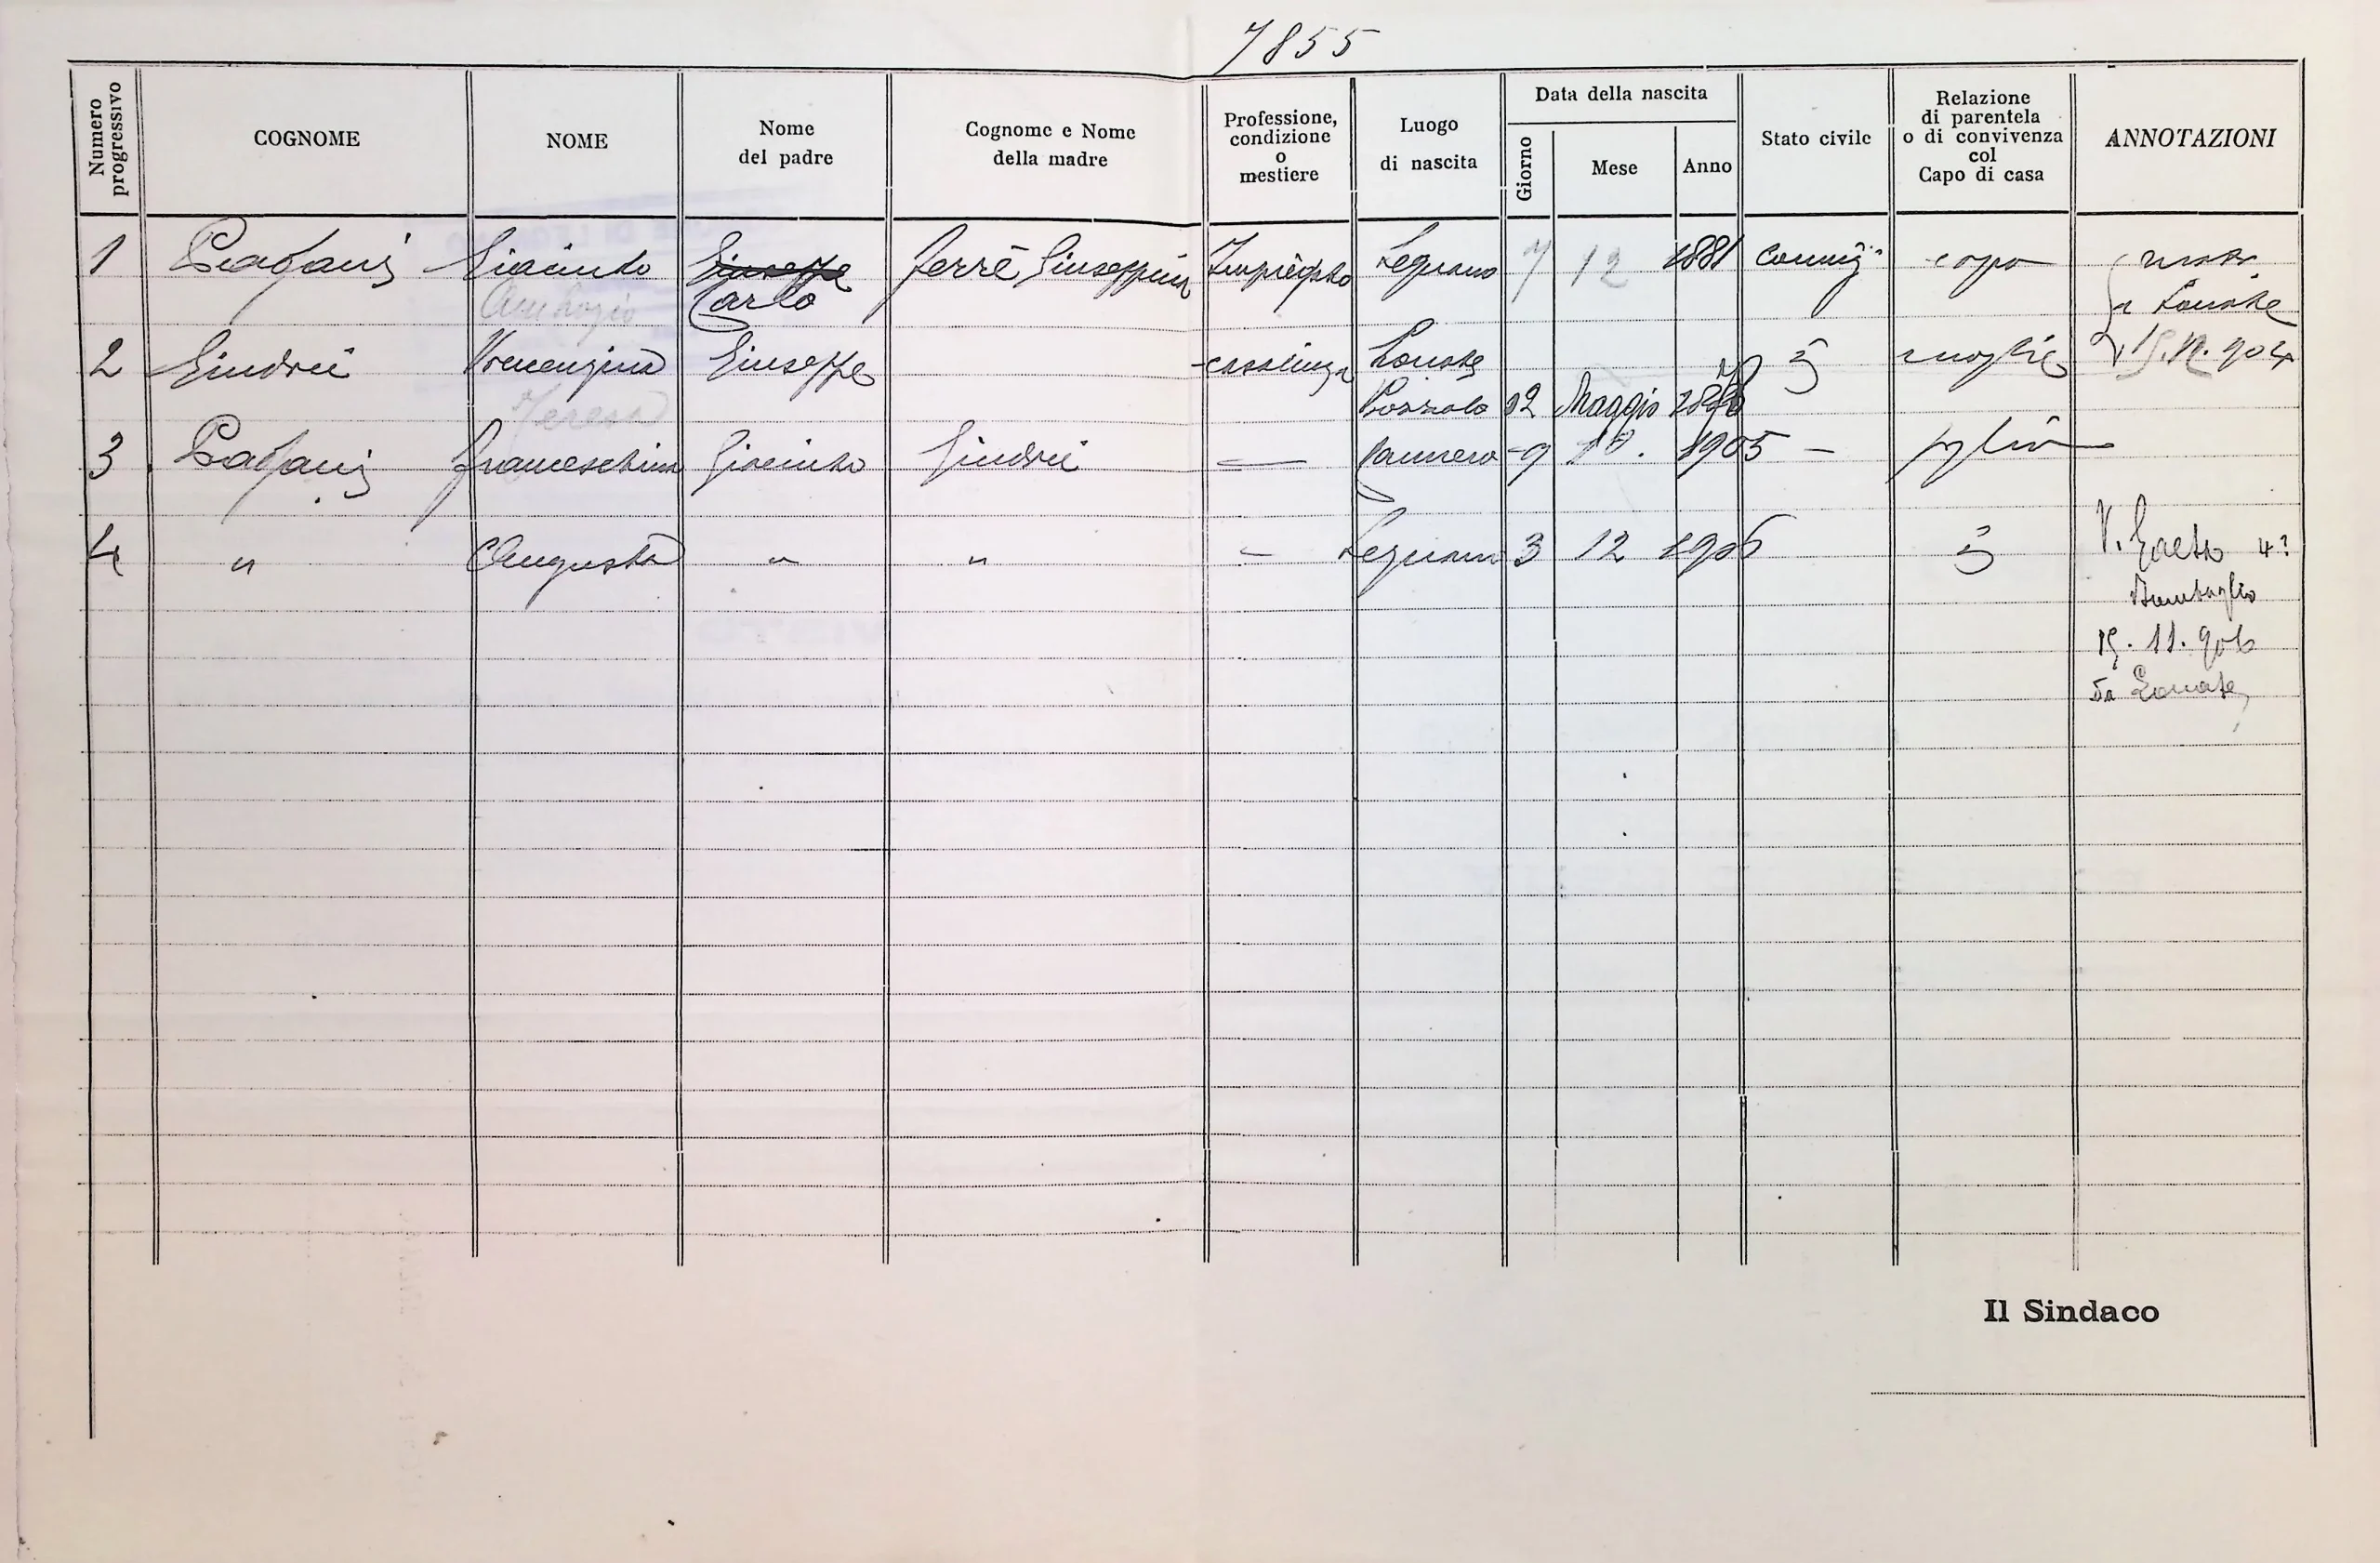 7855
Numero progressivo
COGNOME
NOME
Nome del padre
Cognome e Nome della madre
Professione, condizione o mestiere
Luogo di nascita
Data della nascita
Giorno
Mese
Anno
Stato civile
Relazione di parentela o di convivenza col Capo di casa
ANNOTAZIONI
1 Pagani Giacinto Giuseppe Ferrè Giuseppina Impiegato Legnano 7 12 1881 coniug. capo
Ambrogio Carlo a Lonate
2 Giudici Giuseppe casalinga Lonate moglie
Teresa Pozzolo 12 Maggio
3 Pagani Franceschina Giacinto Giudici — 9 1905 — figlia
4 " Augusta " " — Legnano 3 12 1906 V. Gaeta 4
19. 11. 906
da Lonate
Il Sindaco